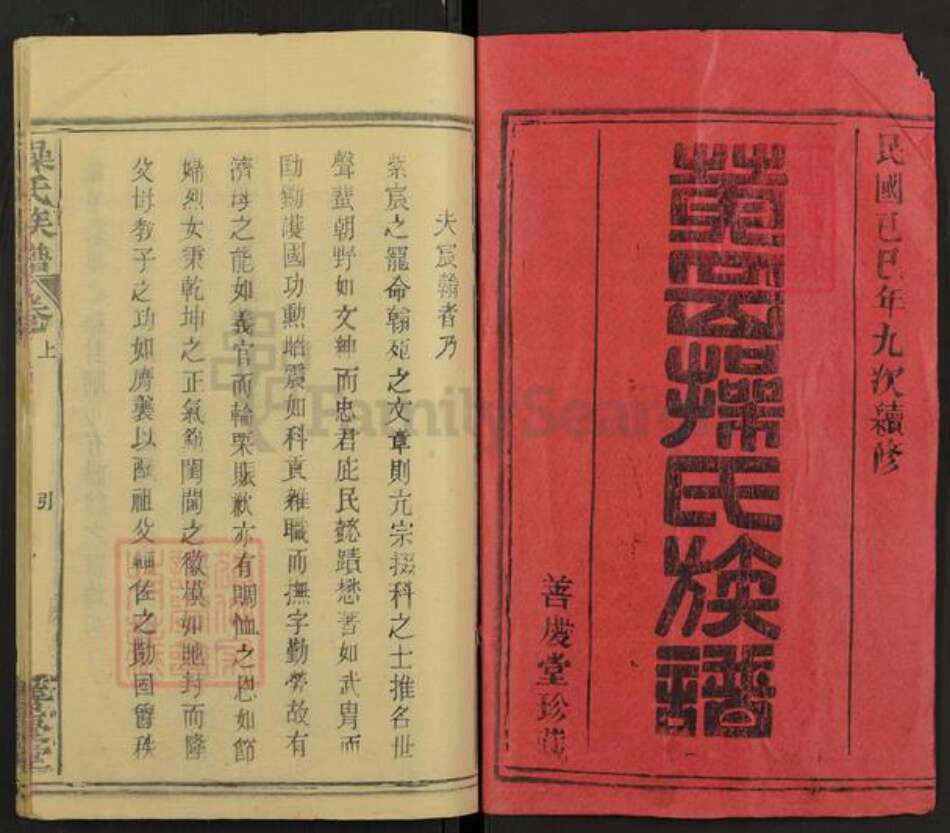 民國己巳年九次續修
操氏族譜
善慶堂珍藏
夫宸翰者乃
紫宸之寵命翰苑之文章則亢宗掇科之士推名世
聲蜚朝野如文紳而忠君庇民懿蹟懋著如武冑而
勛勷護國功勲炤震如科貢雜職而撫字勤勞故有
濟時之能如義官而輸粟賑歉亦有賙恤之恩如節
婦烈女秉乾坤之正氣範閨閫之徽模如貤封而隆
父母教子之功如廕襲以酬祖父輔佐之勛國爵秩
操氏族譜
卷
上
引
FamilySearch